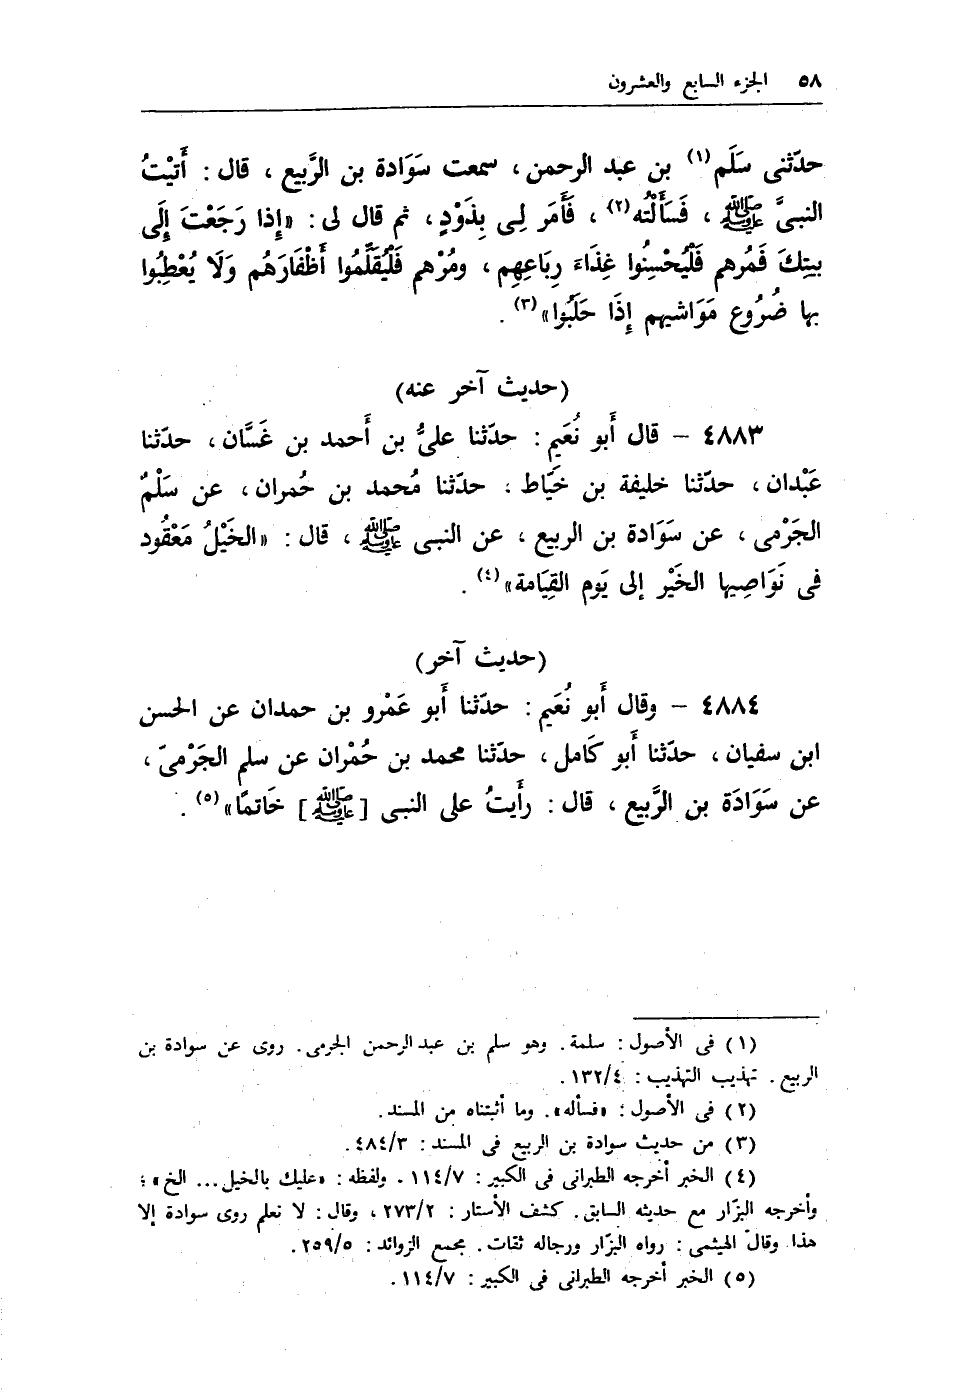 ٥٨ الجزء السابع والعشرون
حدّثنى سَلَم(١) بن عبد الرحمن ، سمعت سَوَادة بن الرَّبيع ، قال : أَتيْتُ
النبىَّ ﷺ ، فَسَأَلْتُه(٢) ، فَأَمَر لِـى بِذَوْدٍ ، ثم قال لى : «إِذا رَجَعْتَ إِلَى
بيتِكَ فَمُرهم فَلْيُحْسِنُوا غِذَاءَ رِبَاعِهِم ، ومُرْهم فَلْيُقَلِّمُوا أظْفَارَهُم وَلَا يُعْطِبُوا
بها ضُرُوع مَوَاشيهم إِذَا حَلَبُوا»(٣) .
(حديث آخر عنه)
٤٨٨٣ – قال أَبو نُعَيم : حدّثنا علىُّ بن أَحمد بن غَسَّان ، حدّثنا
عَبْدان ، حدّثنا خليفة بن خَيّاط ، حدّثنا مُحمد بن حُمران ، عن سَلْمٌ
الجَرْمى ، عن سَوَادة بن الربيع ، عن النبـى ﷺ ، قال : «الخَيْلُ مَعْقُود
فى نَوَاصِيها الخَيْر إلى يَوم القِيَامة»(٤) .
(حديث آخر)
٤٨٨٤ – وقال أَبو نُعَيم : حدّثنا أَبو عَمْرو بن حمدان عن الحسن
ابن سفيان ، حدّثنا أَبو كَامل ، حدّثنا محمد بن حُمْران عن سلم الجَرْمىّ ،
عن سَوَادَة بن الرَّبيع ، قال : رأَيتُ على النبـى [ﷺ] خَاتمًا»(٥) .
(١) فى الأصول : سلمة . وهو سلم بن عبد الرحمن الجرمى . روى عن سوادة بن
الربيع . تهذيب التهذيب : ١٣٢/٤ .
(٢) فى الأصول : «فسأله» . وما أثبتناه من المسند .
(٣) من حديث سوادة بن الربيع فى المسند : ٤٨٤/٣ .
(٤) الخبر أخرجه الطبرانى فى الكبير : ١١٤/٧ . ولفظه : «عليك بالخيل ... الخ» ؛
وأخرجه البزّار مع حديثه السابق . كشف الأستار : ٢٧٣/٢ ، وقال : لا نعلم روى سوادة إلا
هذا . وقال الهيثمى : رواه البزّار ورجاله ثقات . مجمع الزوائد : ٢٥٩/٥ .
(٥) الخبر أخرجه الطبرانى فى الكبير : ١١٤/٧ .